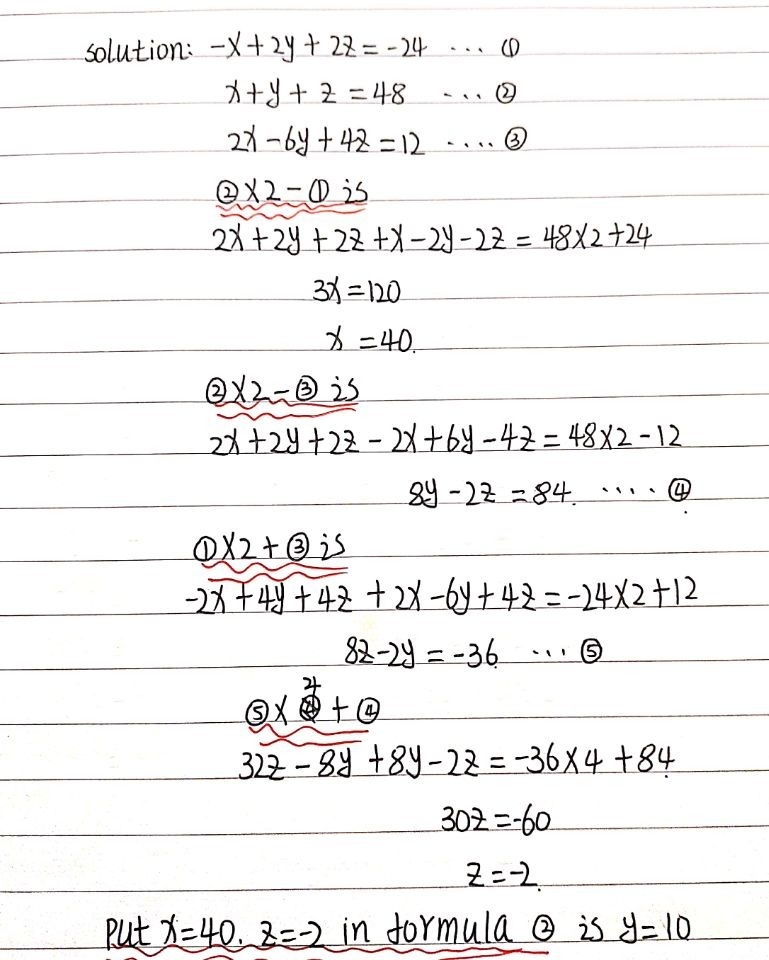 solution: -x+2y+2z=-24 ... ①
x+y+z=48 ... ②
2x-6y+4z=12 .... ③
②×2-① is
2x+2y+2z+x-2y-2z=48×2+24
3x=120
x=40.
②×2-③ is
2x+2y+2z-2x+6y-4z=48×2-12
8y-2z=84. .... ④
①×2+③ is
-2x+4y+4z+2x-6y+4z=-24×2+12
8z-2y=-36 ... ⑤
⑤×4+④
32z-8y+8y-2z=-36×4+84
30z=-60
z=-2.
Put x=40. z=-2 in formula ② is y=10